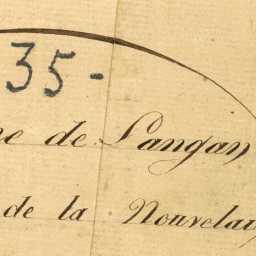 35-
ne de Langan
de la Nouvelau